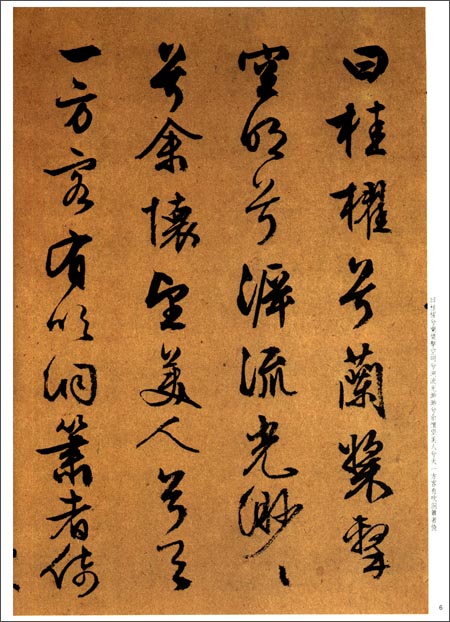 曰桂櫂兮蘭槳擊
空明兮泝流光渺〻
兮余懷望美人兮天
一方客有吹洞簫者倚
曰桂櫂兮蘭槳擊空明兮泝流光渺渺兮余懷望美人兮天一方客有吹洞簫者倚
6